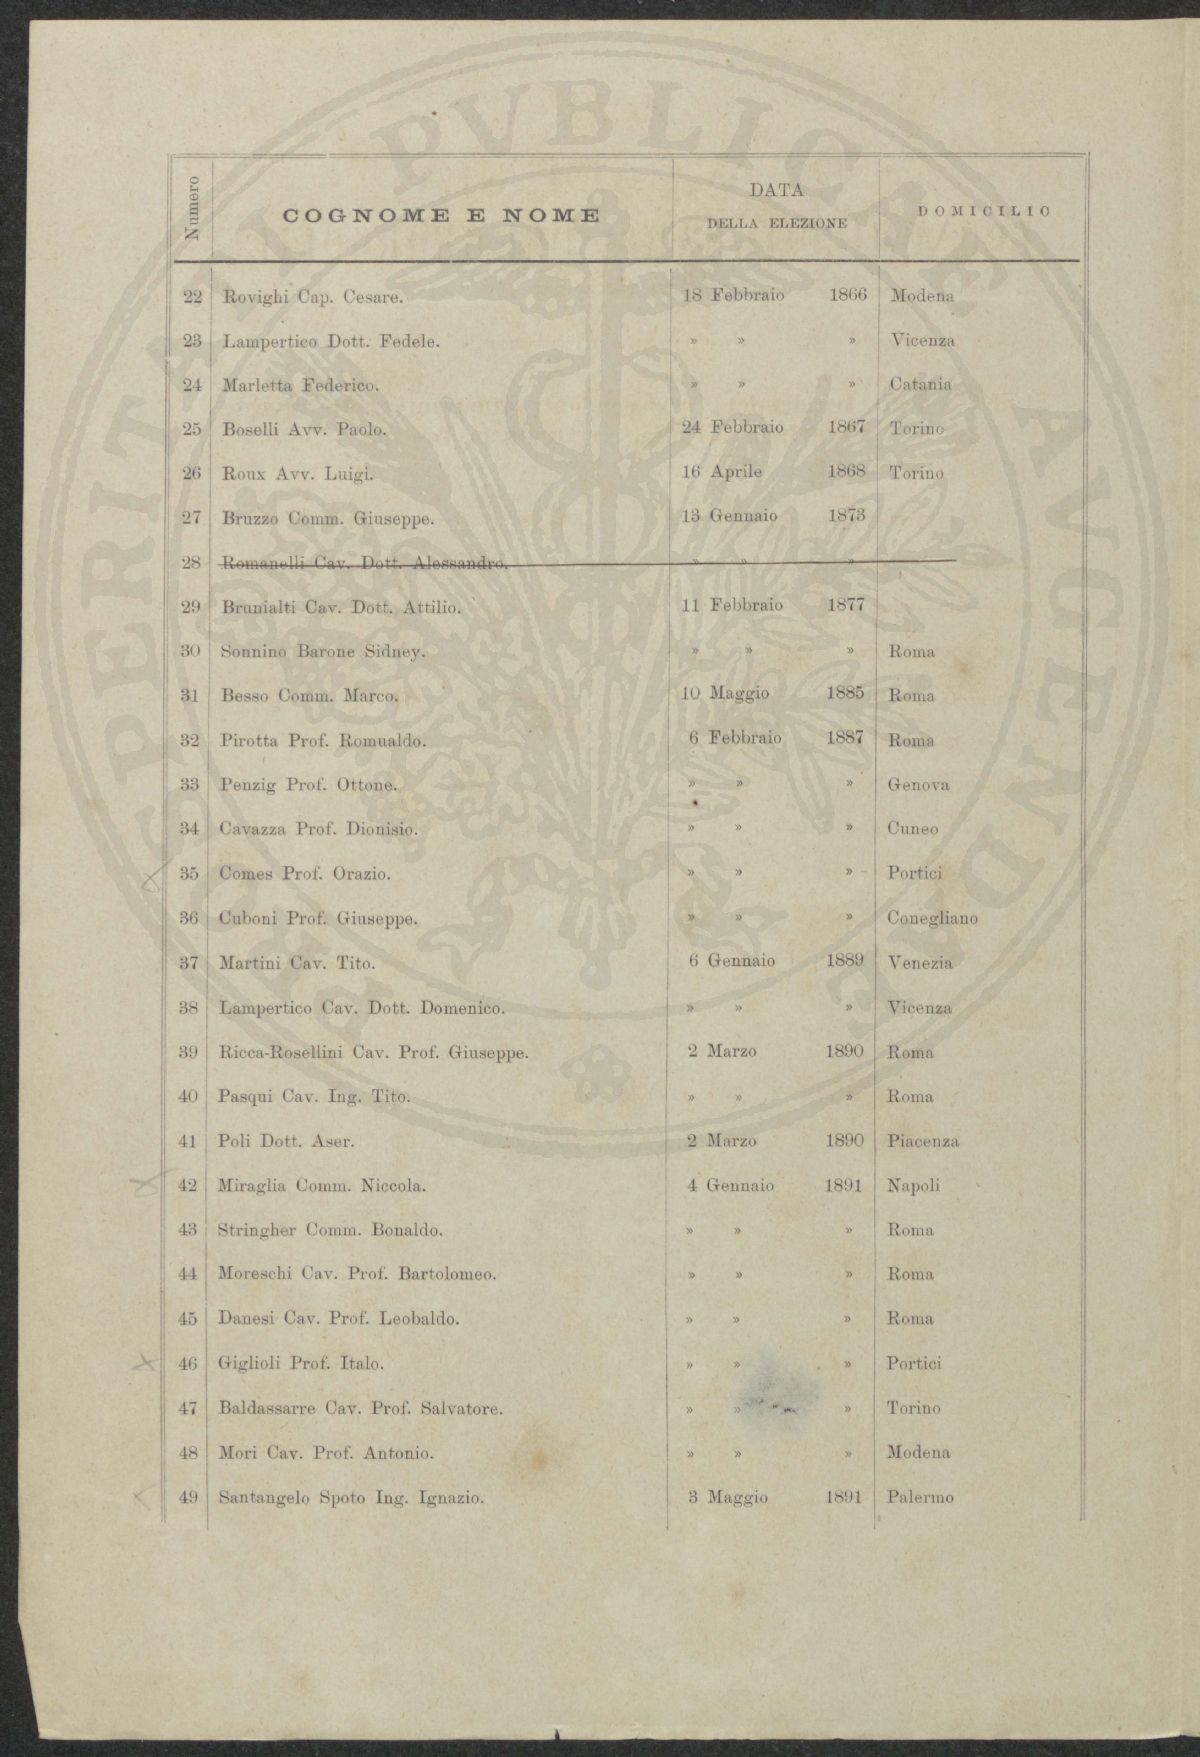 PROSPERITATI PUBLICAE AUGENDAE
Numero
COGNOME E NOME
DATA
DELLA ELEZIONE
DOMICILIO
22 Rovighi Cap. Cesare. 18 Febbraio 1866 Modena
23 Lampertico Dott. Fedele. » » » Vicenza
24 Marletta Federico. » » » Catania
25 Boselli Avv. Paolo. 24 Febbraio 1867 Torino
26 Roux Avv. Luigi. 16 Aprile 1868 Torino
27 Bruzzo Comm. Giuseppe. 13 Gennaio 1873
28 Romanelli Cav. Dott. Alessandro. » » »
29 Brunialti Cav. Dott. Attilio. 11 Febbraio 1877
30 Sonnino Barone Sidney. » » » Roma
31 Besso Comm. Marco. 10 Maggio 1885 Roma
32 Pirotta Prof. Romualdo. 6 Febbraio 1887 Roma
33 Penzig Prof. Ottone. » » » Genova
34 Cavazza Prof. Dionisio. » » » Cuneo
35 Comes Prof. Orazio. » » » Portici
36 Cuboni Prof. Giuseppe. » » » Conegliano
37 Martini Cav. Tito. 6 Gennaio 1889 Venezia
38 Lampertico Cav. Dott. Domenico. » » » Vicenza
39 Ricca-Rosellini Cav. Prof. Giuseppe. 2 Marzo 1890 Roma
40 Pasqui Cav. Ing. Tito. » » » Roma
41 Poli Dott. Aser. 2 Marzo 1890 Piacenza
42 Miraglia Comm. Niccola. 4 Gennaio 1891 Napoli
43 Stringher Comm. Bonaldo. » » » Roma
44 Moreschi Cav. Prof. Bartolomeo. » » » Roma
45 Danesi Cav. Prof. Leobaldo. » » » Roma
46 Giglioli Prof. Italo. » » » Portici
47 Baldassarre Cav. Prof. Salvatore. » » » Torino
48 Mori Cav. Prof. Antonio. » » » Modena
49 Santangelo Spoto Ing. Ignazio. 3 Maggio 1891 Palermo